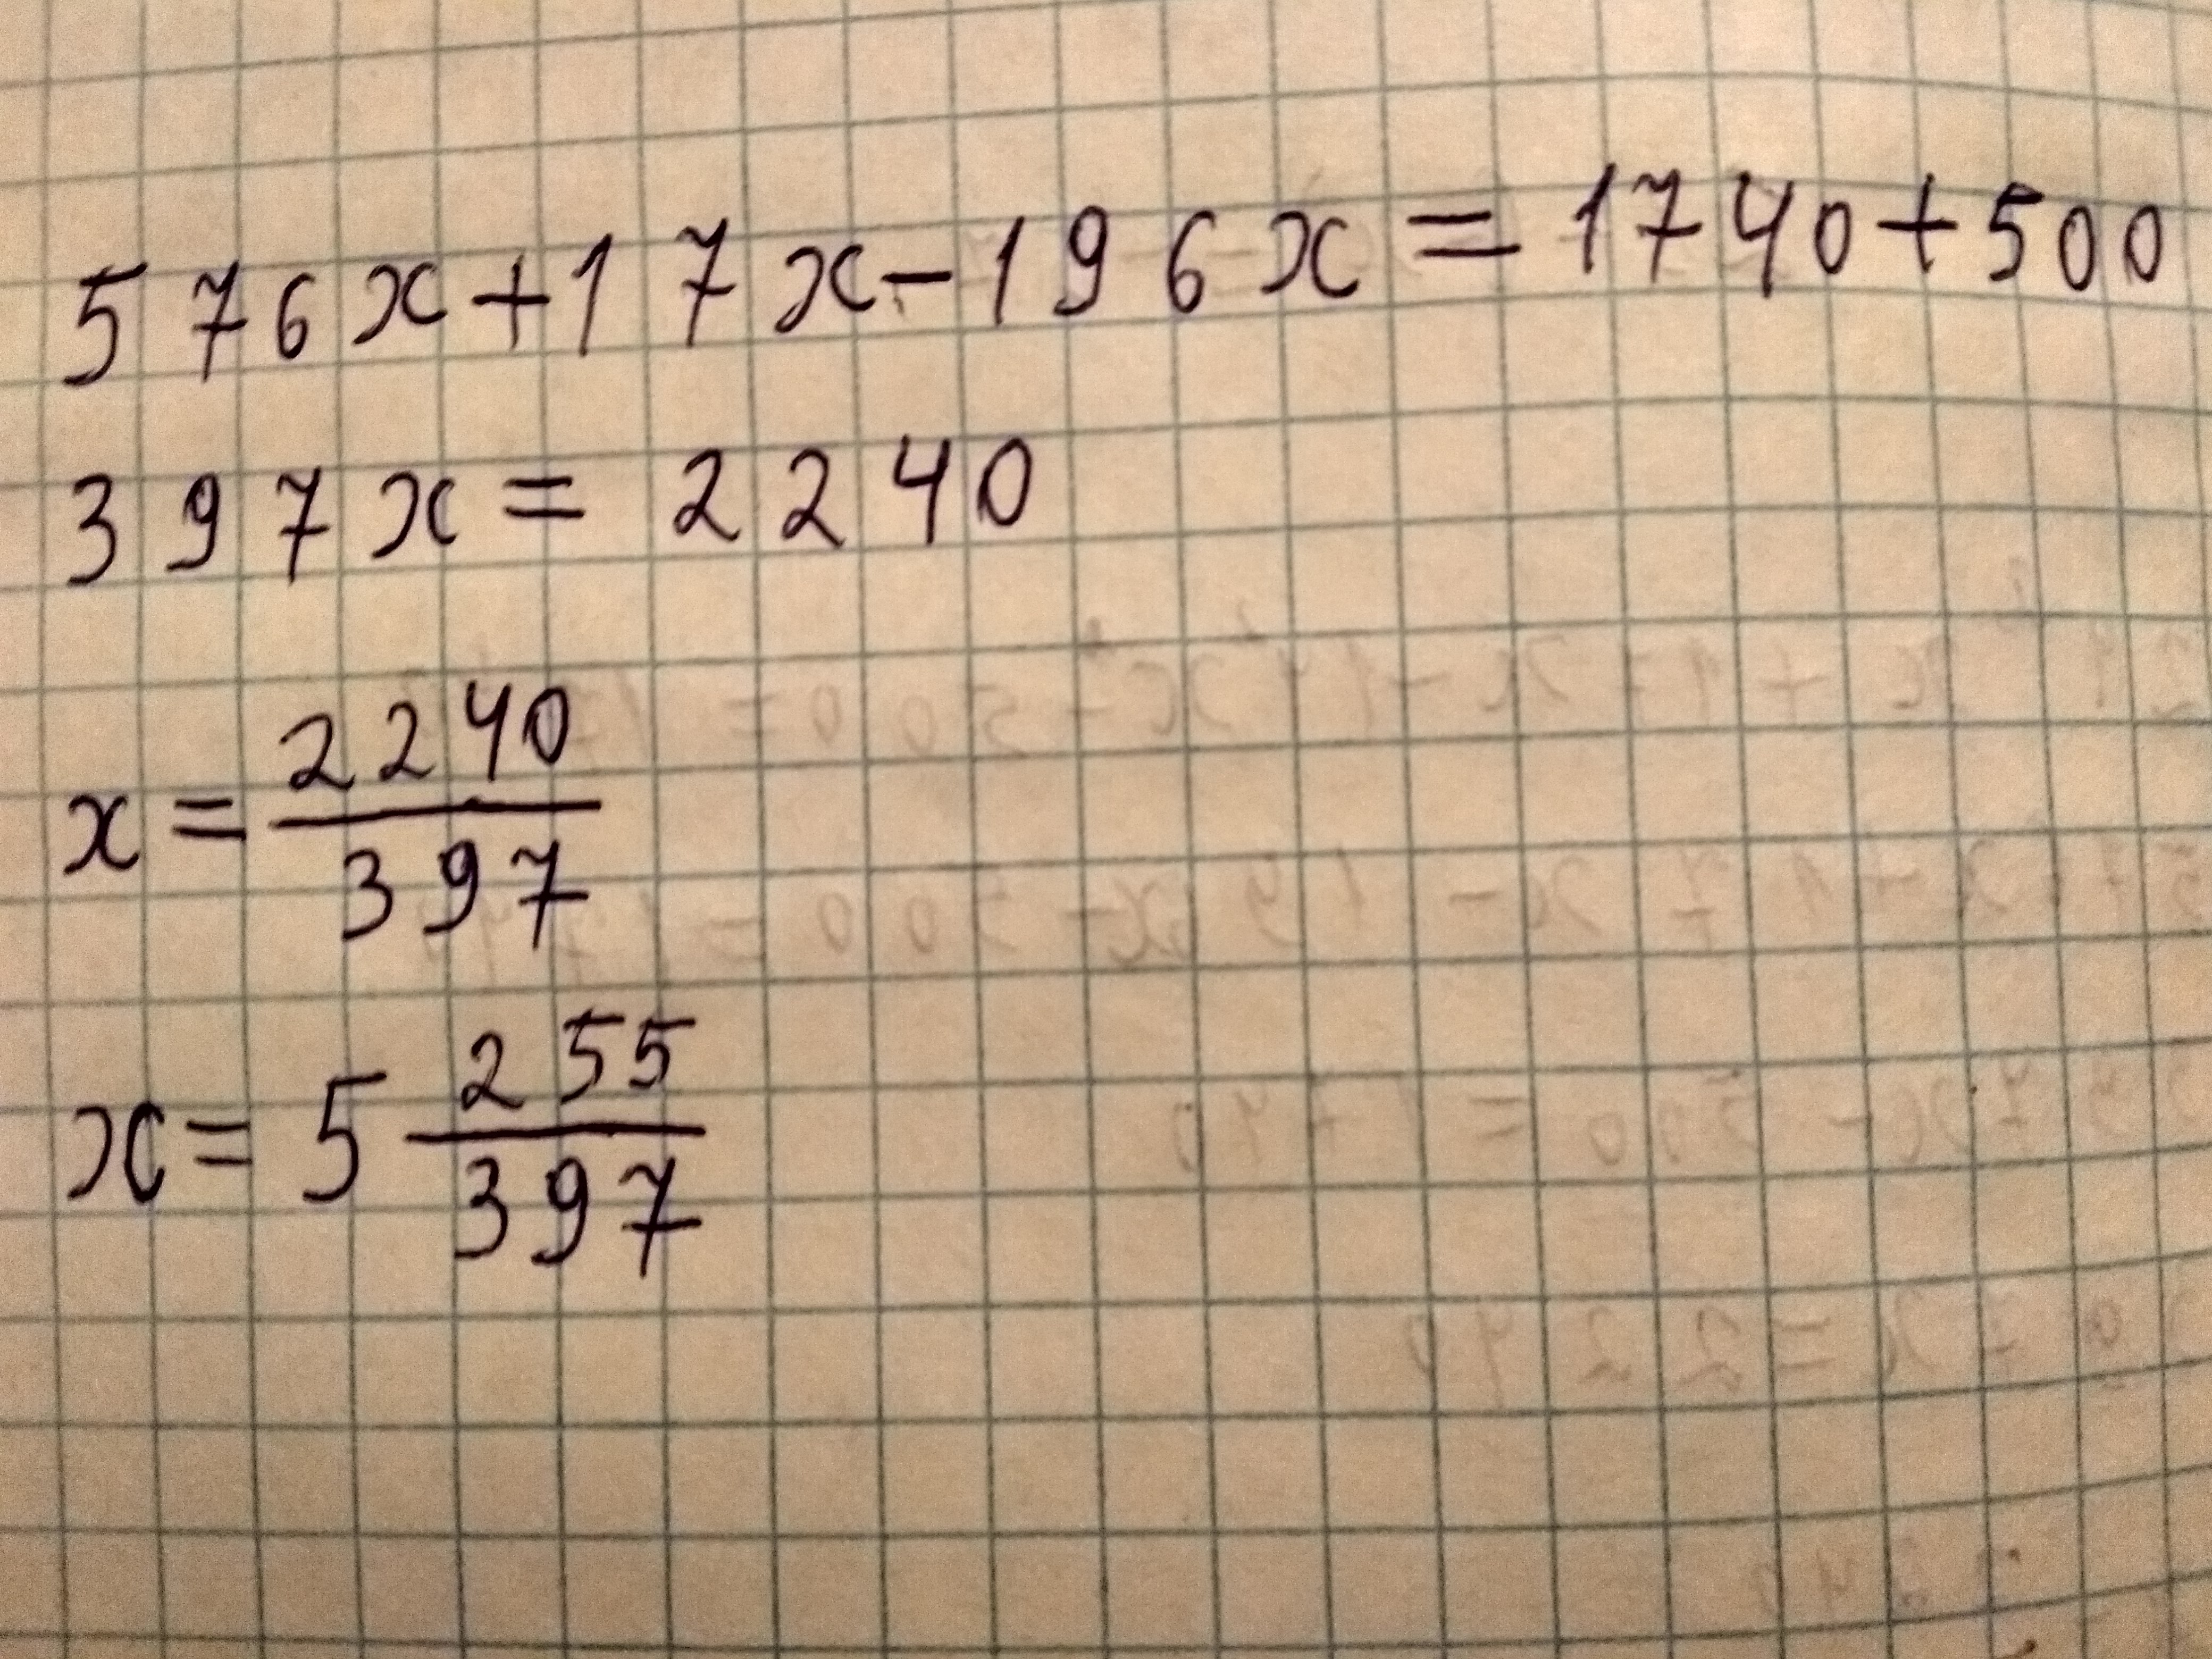 576x+17x-196x=1740+500
397x=2240
x=2240/397
x=5 255/397